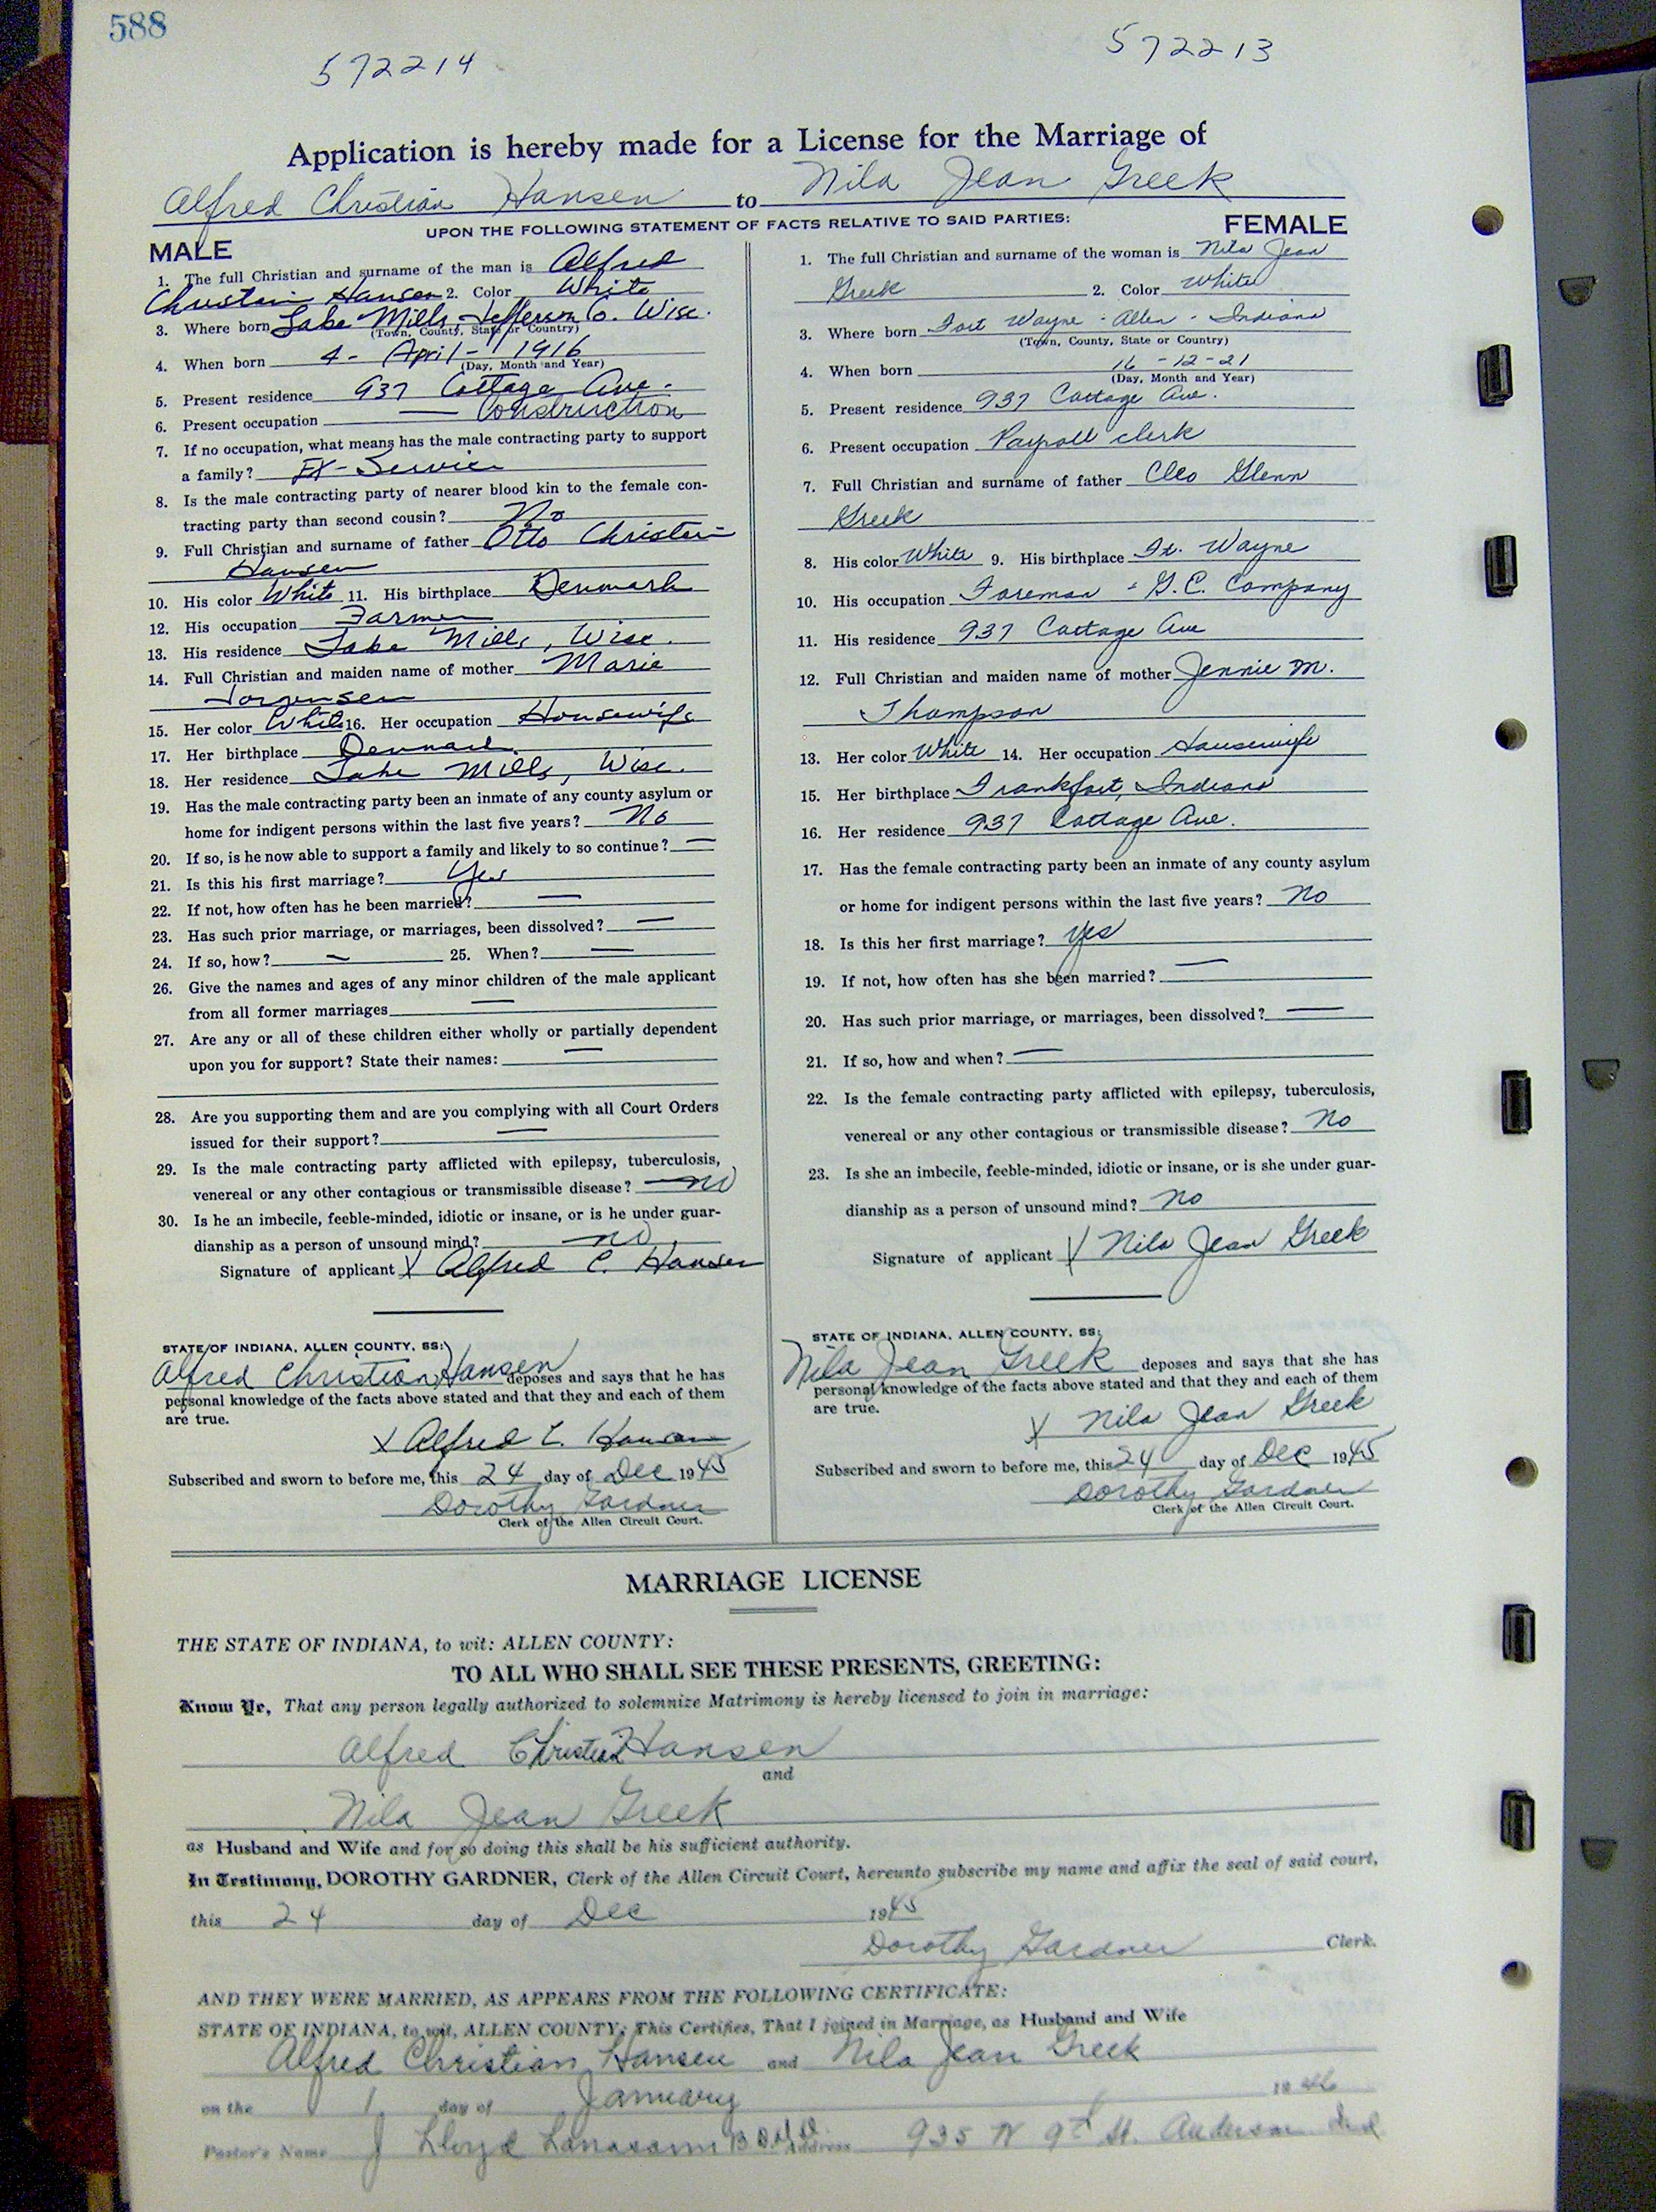 588
572214
572213
Application is hereby made for a License for the Marriage of
Alfred Christian Hansen to Nila Jean Greek
UPON THE FOLLOWING STATEMENT OF FACTS RELATIVE TO SAID PARTIES:
MALE
1. The full Christian and surname of the man is Alfred
Christian Hansen 2. Color White
3. Where born Lake Mills - Jefferson Co. Wisc.
(Town, County, State or Country)
4. When born 4 - April - 1916
(Day, Month and Year)
5. Present residence 937 Cottage Ave.
6. Present occupation — Construction
7. If no occupation, what means has the male contracting party to support
a family? EX-Service
8. Is the male contracting party of nearer blood kin to the female con-
tracting party than second cousin? No
9. Full Christian and surname of father Otto Christian
Hansen
10. His color White 11. His birthplace Denmark
12. His occupation Farmer
13. His residence Lake Mills, Wisc.
14. Full Christian and maiden name of mother Marie
Jorgensen
15. Her color White 16. Her occupation Housewife
17. Her birthplace Denmark
18. Her residence Lake Mills, Wisc.
19. Has the male contracting party been an inmate of any county asylum or
home for indigent persons within the last five years? No
20. If so, is he now able to support a family and likely to so continue? —
21. Is this his first marriage? Yes
22. If not, how often has he been married? —
23. Has such prior marriage, or marriages, been dissolved? —
24. If so, how? — 25. When? —
26. Give the names and ages of any minor children of the male applicant
from all former marriages —
27. Are any or all of these children either wholly or partially dependent
upon you for support? State their names: —
28. Are you supporting them and are you complying with all Court Orders
issued for their support? —
29. Is the male contracting party afflicted with epilepsy, tuberculosis,
venereal or any other contagious or transmissible disease? no
30. Is he an imbecile, feeble-minded, idiotic or insane, or is he under guar-
dianship as a person of unsound mind? no
Signature of applicant X Alfred C. Hansen
STATE OF INDIANA, ALLEN COUNTY, SS:
Alfred Christian Hansen deposes and says that he has
personal knowledge of the facts above stated and that they and each of them
are true.
X Alfred C. Hansen
Subscribed and sworn to before me, this 24 day of Dec 1945
Dorothy Gardner
Clerk of the Allen Circuit Court.
FEMALE
1. The full Christian and surname of the woman is Nila Jean
Greek 2. Color White
3. Where born Fort Wayne - Allen - Indiana
(Town, County, State or Country)
4. When born 16 - 12 - 21
(Day, Month and Year)
5. Present residence 937 Cottage Ave.
6. Present occupation Payroll clerk
7. Full Christian and surname of father Cleo Glenn
Greek
8. His color White 9. His birthplace Ft. Wayne
10. His occupation Foreman - G.E. Company
11. His residence 937 Cottage Ave
12. Full Christian and maiden name of mother Jennie M.
Thompson
13. Her color White 14. Her occupation Housewife
15. Her birthplace Frankfort, Indiana
16. Her residence 937 Cottage Ave.
17. Has the female contracting party been an inmate of any county asylum
or home for indigent persons within the last five years? No
18. Is this her first marriage? yes
19. If not, how often has she been married? —
20. Has such prior marriage, or marriages, been dissolved? —
21. If so, how and when? —
22. Is the female contracting party afflicted with epilepsy, tuberculosis,
venereal or any other contagious or transmissible disease? No
23. Is she an imbecile, feeble-minded, idiotic or insane, or is she under guar-
dianship as a person of unsound mind? No
Signature of applicant X Nila Jean Greek
STATE OF INDIANA, ALLEN COUNTY, SS:
Nila Jean Greek deposes and says that she has
personal knowledge of the facts above stated and that they and each of them
are true.
X Nila Jean Greek
Subscribed and sworn to before me, this 24 day of Dec 1945
Dorothy Gardner
Clerk of the Allen Circuit Court.
MARRIAGE LICENSE
THE STATE OF INDIANA, to wit: ALLEN COUNTY:
TO ALL WHO SHALL SEE THESE PRESENTS, GREETING:
Know Ye, That any person legally authorized to solemnize Matrimony is hereby licensed to join in marriage:
Alfred Christian Hansen
and
Nila Jean Greek
as Husband and Wife and for so doing this shall be his sufficient authority.
In Testimony, DOROTHY GARDNER, Clerk of the Allen Circuit Court, hereunto subscribe my name and affix the seal of said court,
this 24 day of Dec 1945
Dorothy Gardner Clerk.
AND THEY WERE MARRIED, AS APPEARS FROM THE FOLLOWING CERTIFICATE:
STATE OF INDIANA, to wit, ALLEN COUNTY: This Certifies, That I joined in Marriage, as Husband and Wife
Alfred Christian Hansen and Nila Jean Greek
on the 1 day of January 1946
Pastor's Name J Lloyd Address 935 W 9th St. Anderson Ind